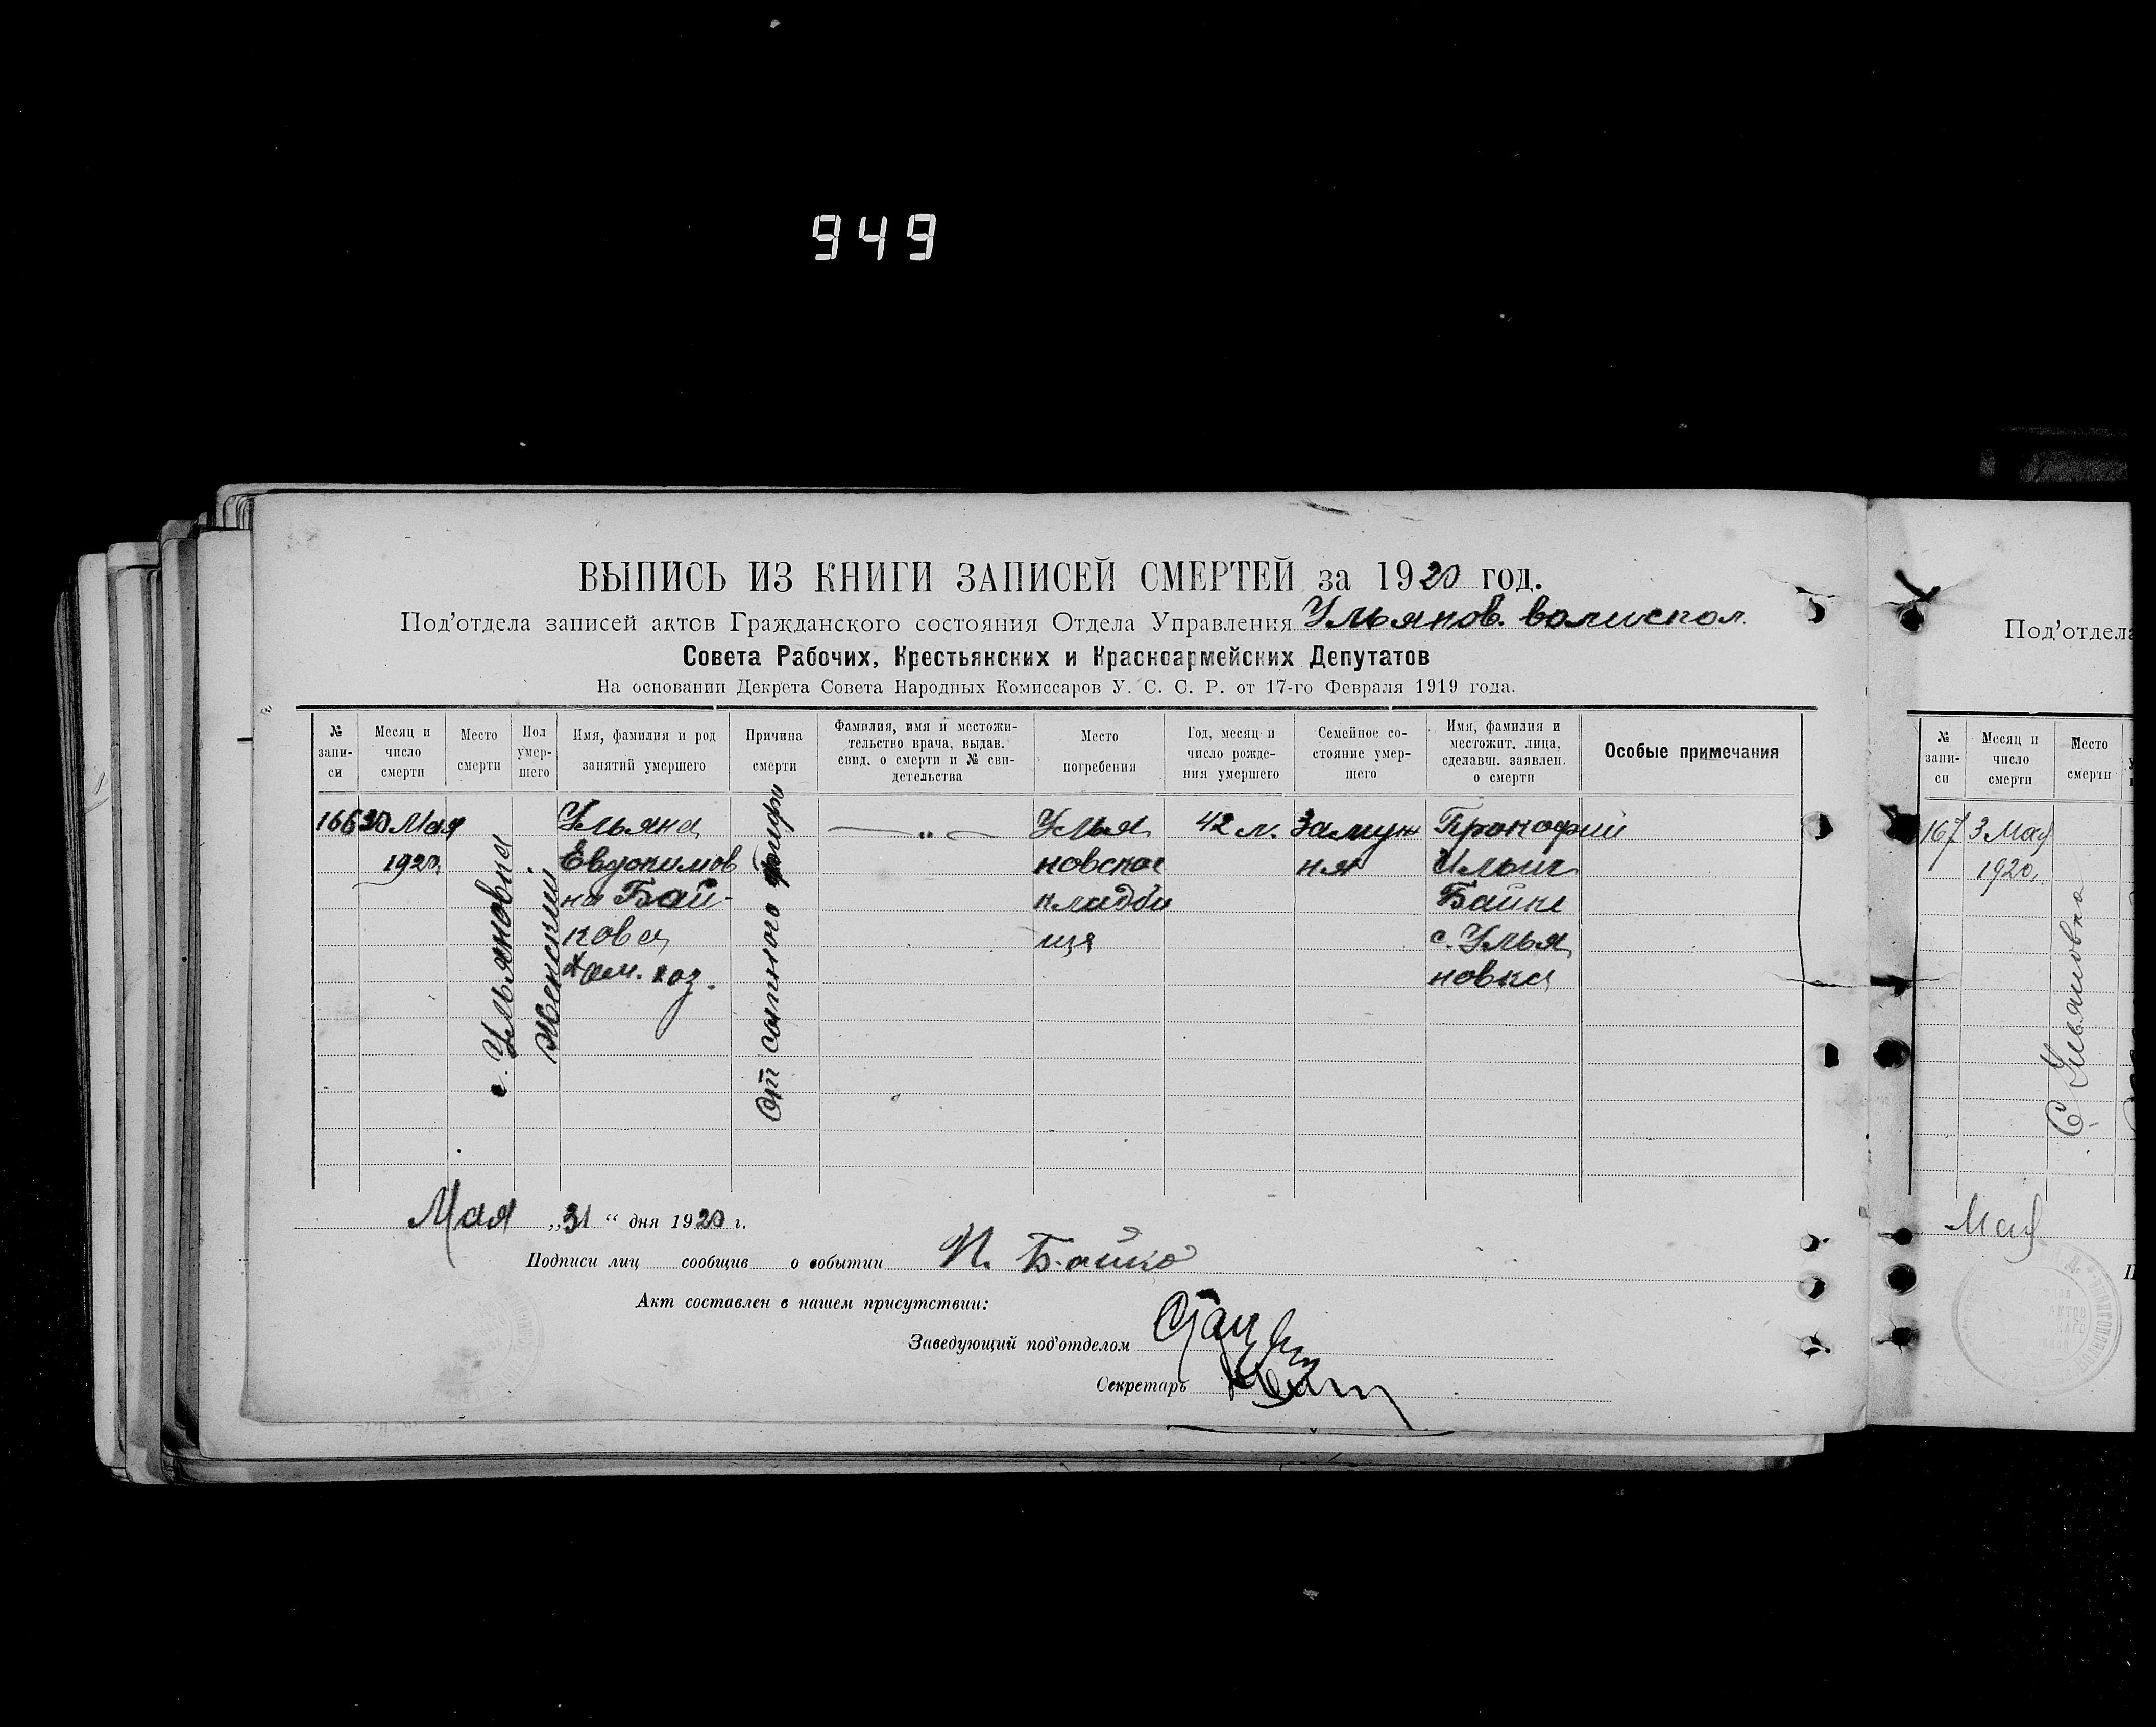 949
ВЫПИСЬ ИЗ КНИГИ ЗАПИСЕЙ СМЕРТЕЙ за 1920 год.
Под'отдела записей актов Гражданского состояния Отдела Управления Ульянов. волиспол.
Совета Рабочих, Крестьянских и Красноармейских Депутатов
На основании Декрета Совета Народных Комиссаров У. С. С. Р. от 17-го Февраля 1919 года.
№ запи-си
Месяц и число смерти
Место смерти
Пол умер-шего
Имя, фамилия и род занятий умершего
Причина смерти
Фамилия, имя и местожи-тельство врача, выдав. свид. о смерти и № сви-детельства
Место погребения
Год, месяц и число рожде-ния умершего
Семейное со-стояние умер-шего
Имя, фамилия и местожит. лица, сделавш. заявлен. о смерти
Особые примечания
166
30 Мая
1920.
с. Ульяновка
Женский
Ульяна
Евдокимов
на Бай-
кова
дом. хоз.
От сыпного тифа
— „ —
Улья
новское
кладби
ще
42 л.
Замуж
няя
Прокофий
Ильич
Байко
с. Улья
новка
Мая „31“ дня 1920 г.
Подписи лиц сообщив о событии П. Байко
Акт составлен в нашем присутствии:
Заведующий под'отделом
Секретарь
Под'отдела
№ запи-си
Месяц и число смерти
Место смерти
167
3 Мая
1920.
С Ульяновка
Мая